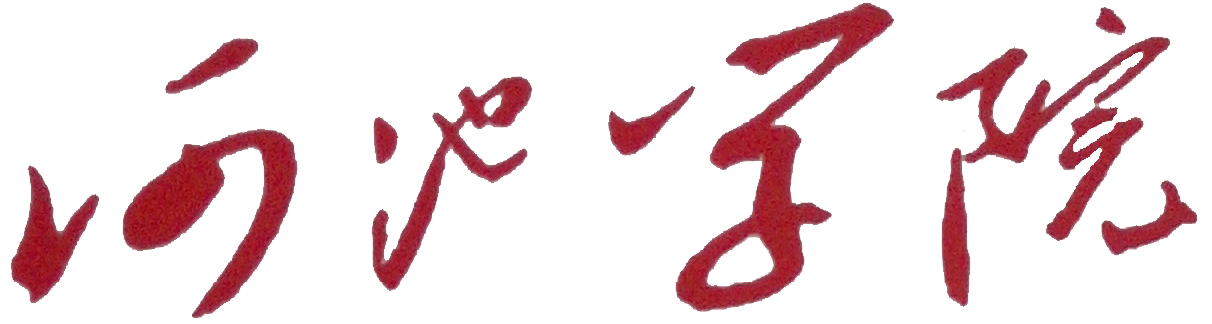 河池学院